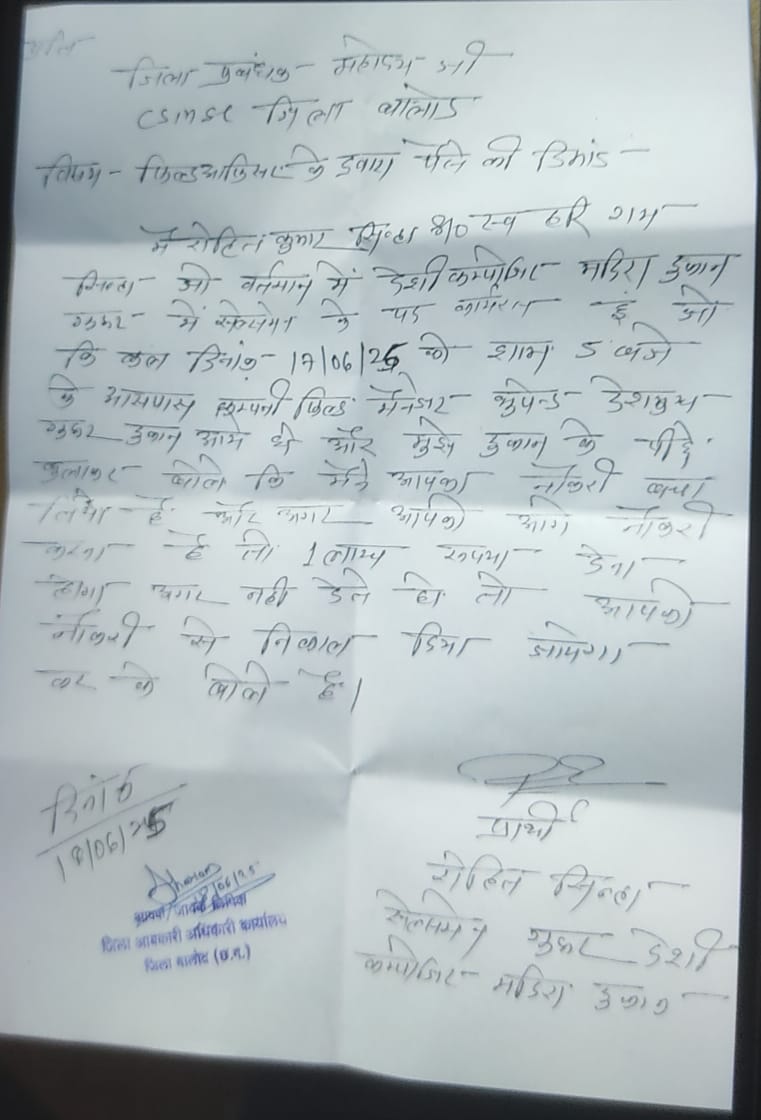 प्रति
जिला प्रबंधक महोदय जी
CSMSC जिला बालोद
विषय - फिल्डआफिसर के द्वारा पैसे की डिमांड
मैं रोहित कुमार सिन्हा S/o स्व हरि राम
सिन्हा जो वर्तमान में देशी कम्पोजिट मदिरा दुकान
गुरूर में सेल्समेन के पद कार्यरत हूं जो
कि कल दिनांक 17/06/25 को शाम 5 बजे
के आसपास कम्पनी फिल्ड मैनेजर भुपेन्द्र देशमुख
गुरूर दुकान आये थे और मुझे दुकान के पीछे
बुलाकर बोले कि मैंने आपका नौकरी बचा
लिया है और अगर आपको आगे नौकरी
करना है तो 1 लाख रूपया देना
होगा अगर नही देते हो तो आपको
नौकरी से निकाल दिया जायेगा
कर के बोले है।
दिनांक
18/06/25
प्रार्थी
रोहित सिन्हा
सेल्समेन गुरूर देशी
कम्पोजिट मदिरा दुकान
18/06/25
आवक / जावक लिपिक
जिला आबकारी अधिकारी कार्यालय
जिला बालोद (छ.ग.)